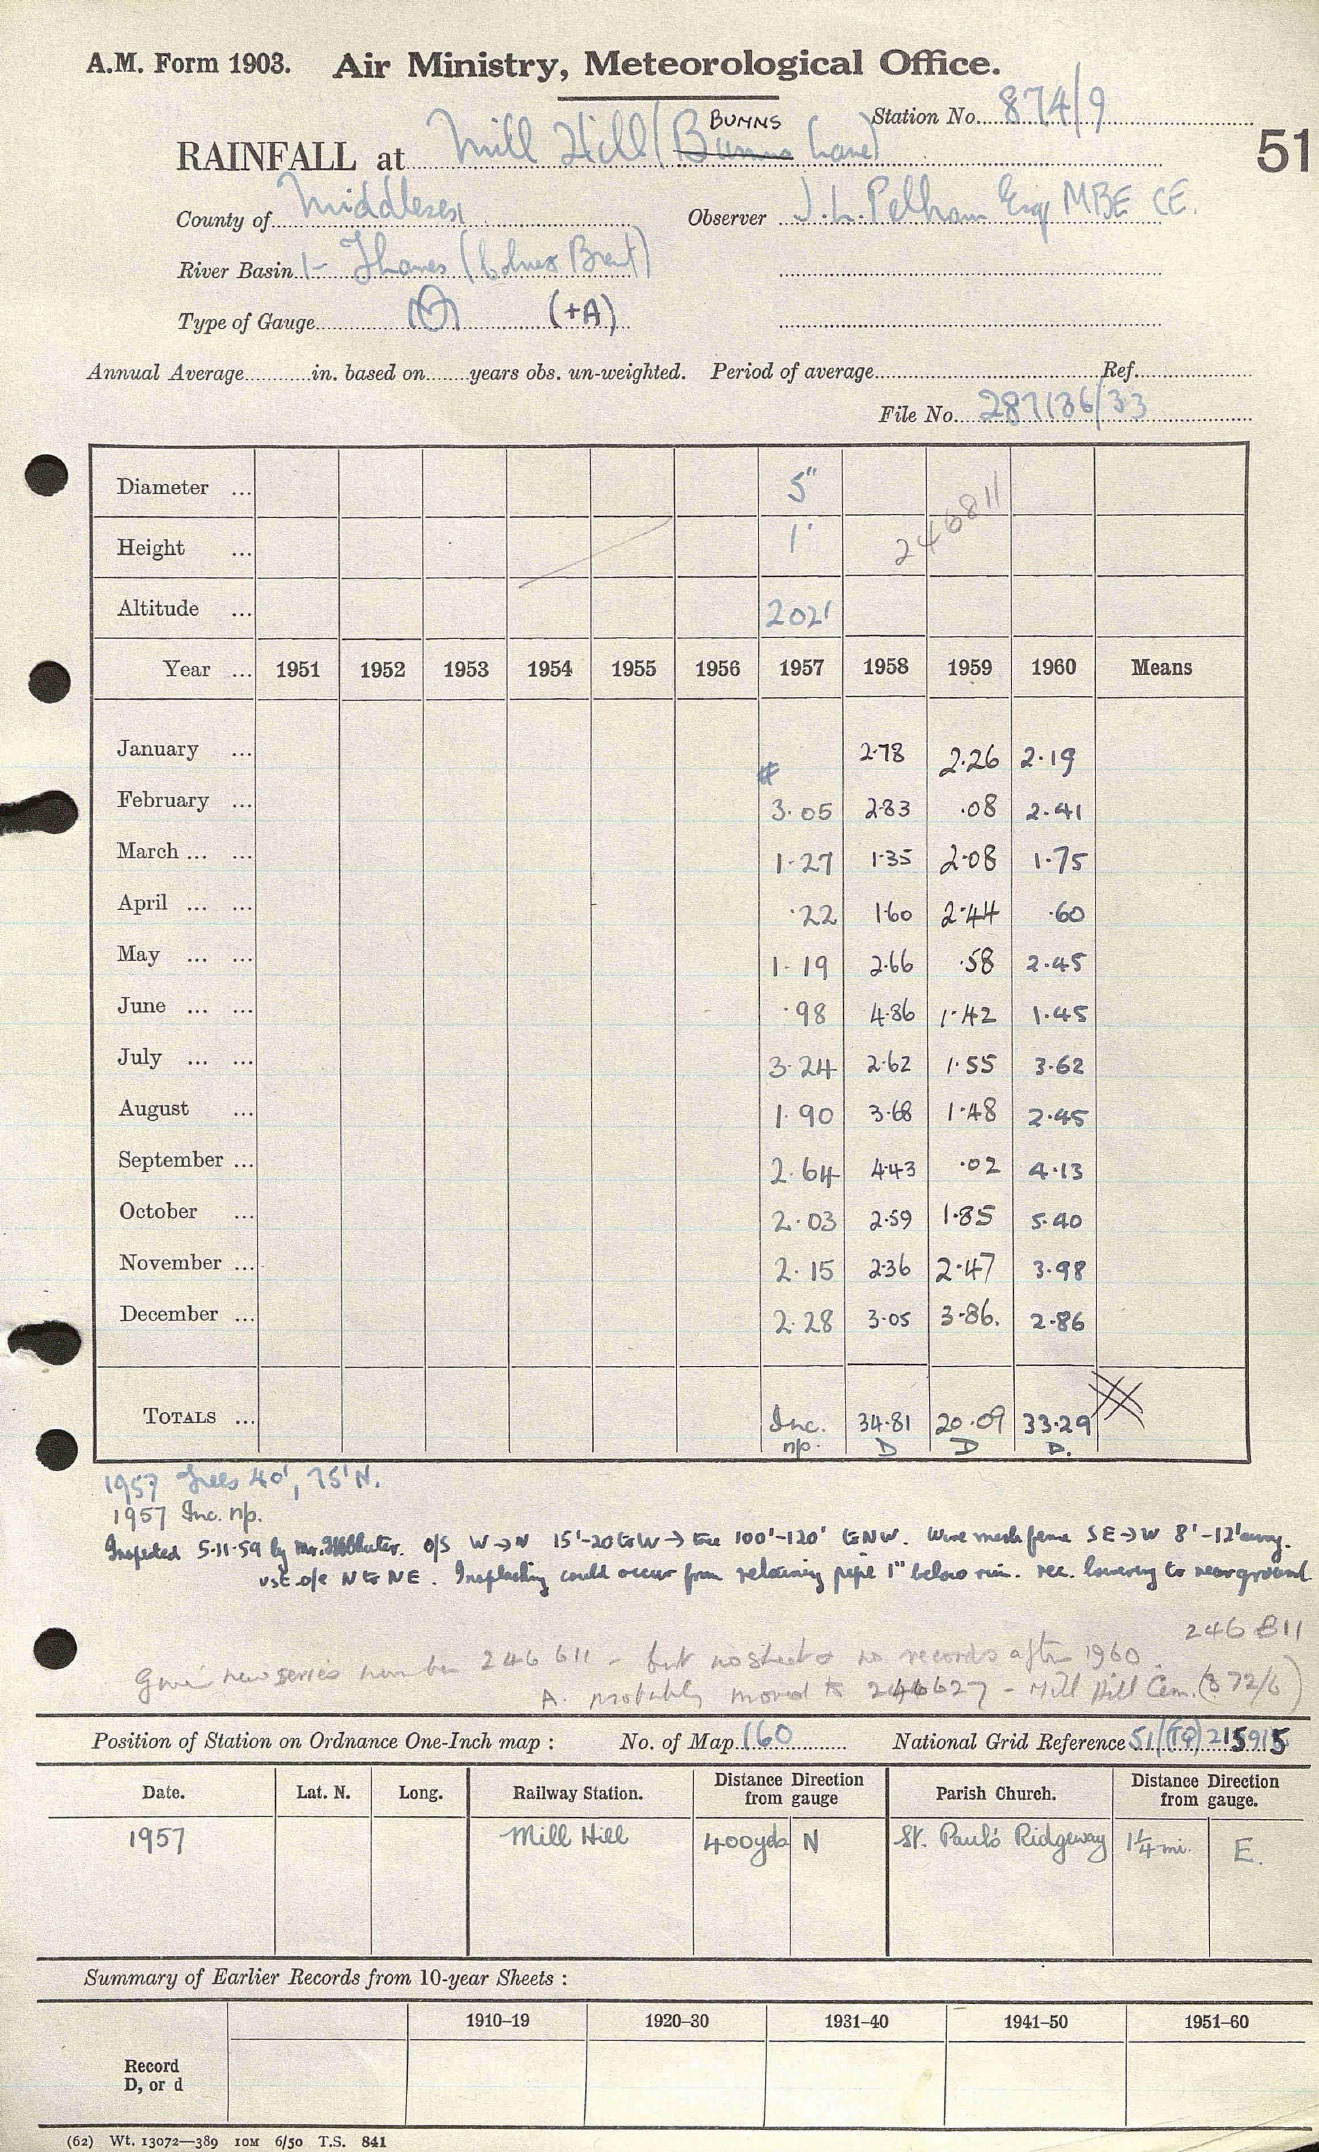 A.M. Form 1903. Air Ministry, Meteorological Office.
Station No. 874/9
BUNNS
RAINFALL at Mill Hill (Bunns Lane)
51
County of Middlesex Observer J. L. Pelham Esq. MBE CE.
River Basin 1- Thames (Colne & Brent)
Type of Gauge (+A)
Annual Average in. based on years obs. un-weighted. Period of average Ref.
File No. 287136/33
Diameter ... 5"
Height ... 1'
246811
Altitude ... 202'
Year ... 1951 1952 1953 1954 1955 1956 1957 1958 1959 1960 Means
January ... # 2.78 2.26 2.19
February ... 3.05 2.83 .08 2.41
March ... ... 1.27 1.35 2.08 1.75
April ... ... .22 1.60 2.44 .60
May ... ... 1.19 2.66 .58 2.45
June ... ... .98 4.86 1.42 1.45
July ... ... 3.24 2.62 1.55 3.62
August ... 1.90 3.68 1.48 2.45
September ... 2.64 4.43 .02 4.13
October ... 2.03 2.59 1.85 5.40
November ... 2.15 2.36 2.47 3.98
December ... 2.28 3.05 3.86. 2.86
TOTALS ... Inc. 34.81 20.09 33.29
n/p. D D D.
1957 Trees 40', 75' N.
1957 Inc. n/p.
Inspected 5.11.59 by Mr. O/S W→N 15'-20' to W → tree 100'-120' to NW. Wire mesh fence SE→W 8'-12' away.
o/e N to NE. Insplashing could occur from retaining pipe 1" below rim. rec. lowering to near ground
246811
Given new series number 246611 - but no sheet & no records after 1960.
A. probably moved to 246627 - Mill Hill Cem. (872/6)
Position of Station on Ordnance One-Inch map : No. of Map 160 National Grid Reference 51/(TQ) 215915
Date. Lat. N. Long. Railway Station. Distance Direction from gauge Parish Church. Distance Direction from gauge.
1957 Mill Hill 400yds N St. Paul's Ridgeway 1¼ mi. E.
Summary of Earlier Records from 10-year Sheets :
1910–19 1920–30 1931–40 1941–50 1951–60
Record
D, or d
(62) Wt. 13072—389 10M 6/50 T.S. 841